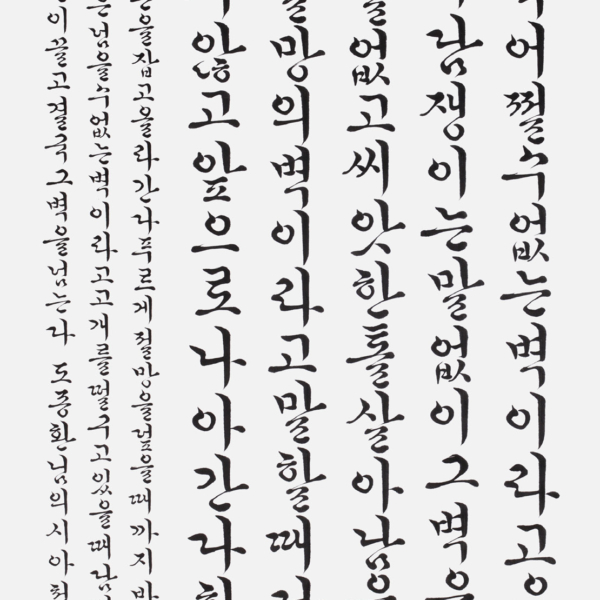 어쩔수없는벽이라고
담쟁이는말없이그벽
없고씨앗한톨살아남
망의벽이라고말할때
않고앞으로나아간다
을잡고올라간다푸르게절망을덮을때까지
넘을수없는벽이라고고개를떨구고있을때담
이끌고결국그벽을넘는다 도종환님의시아